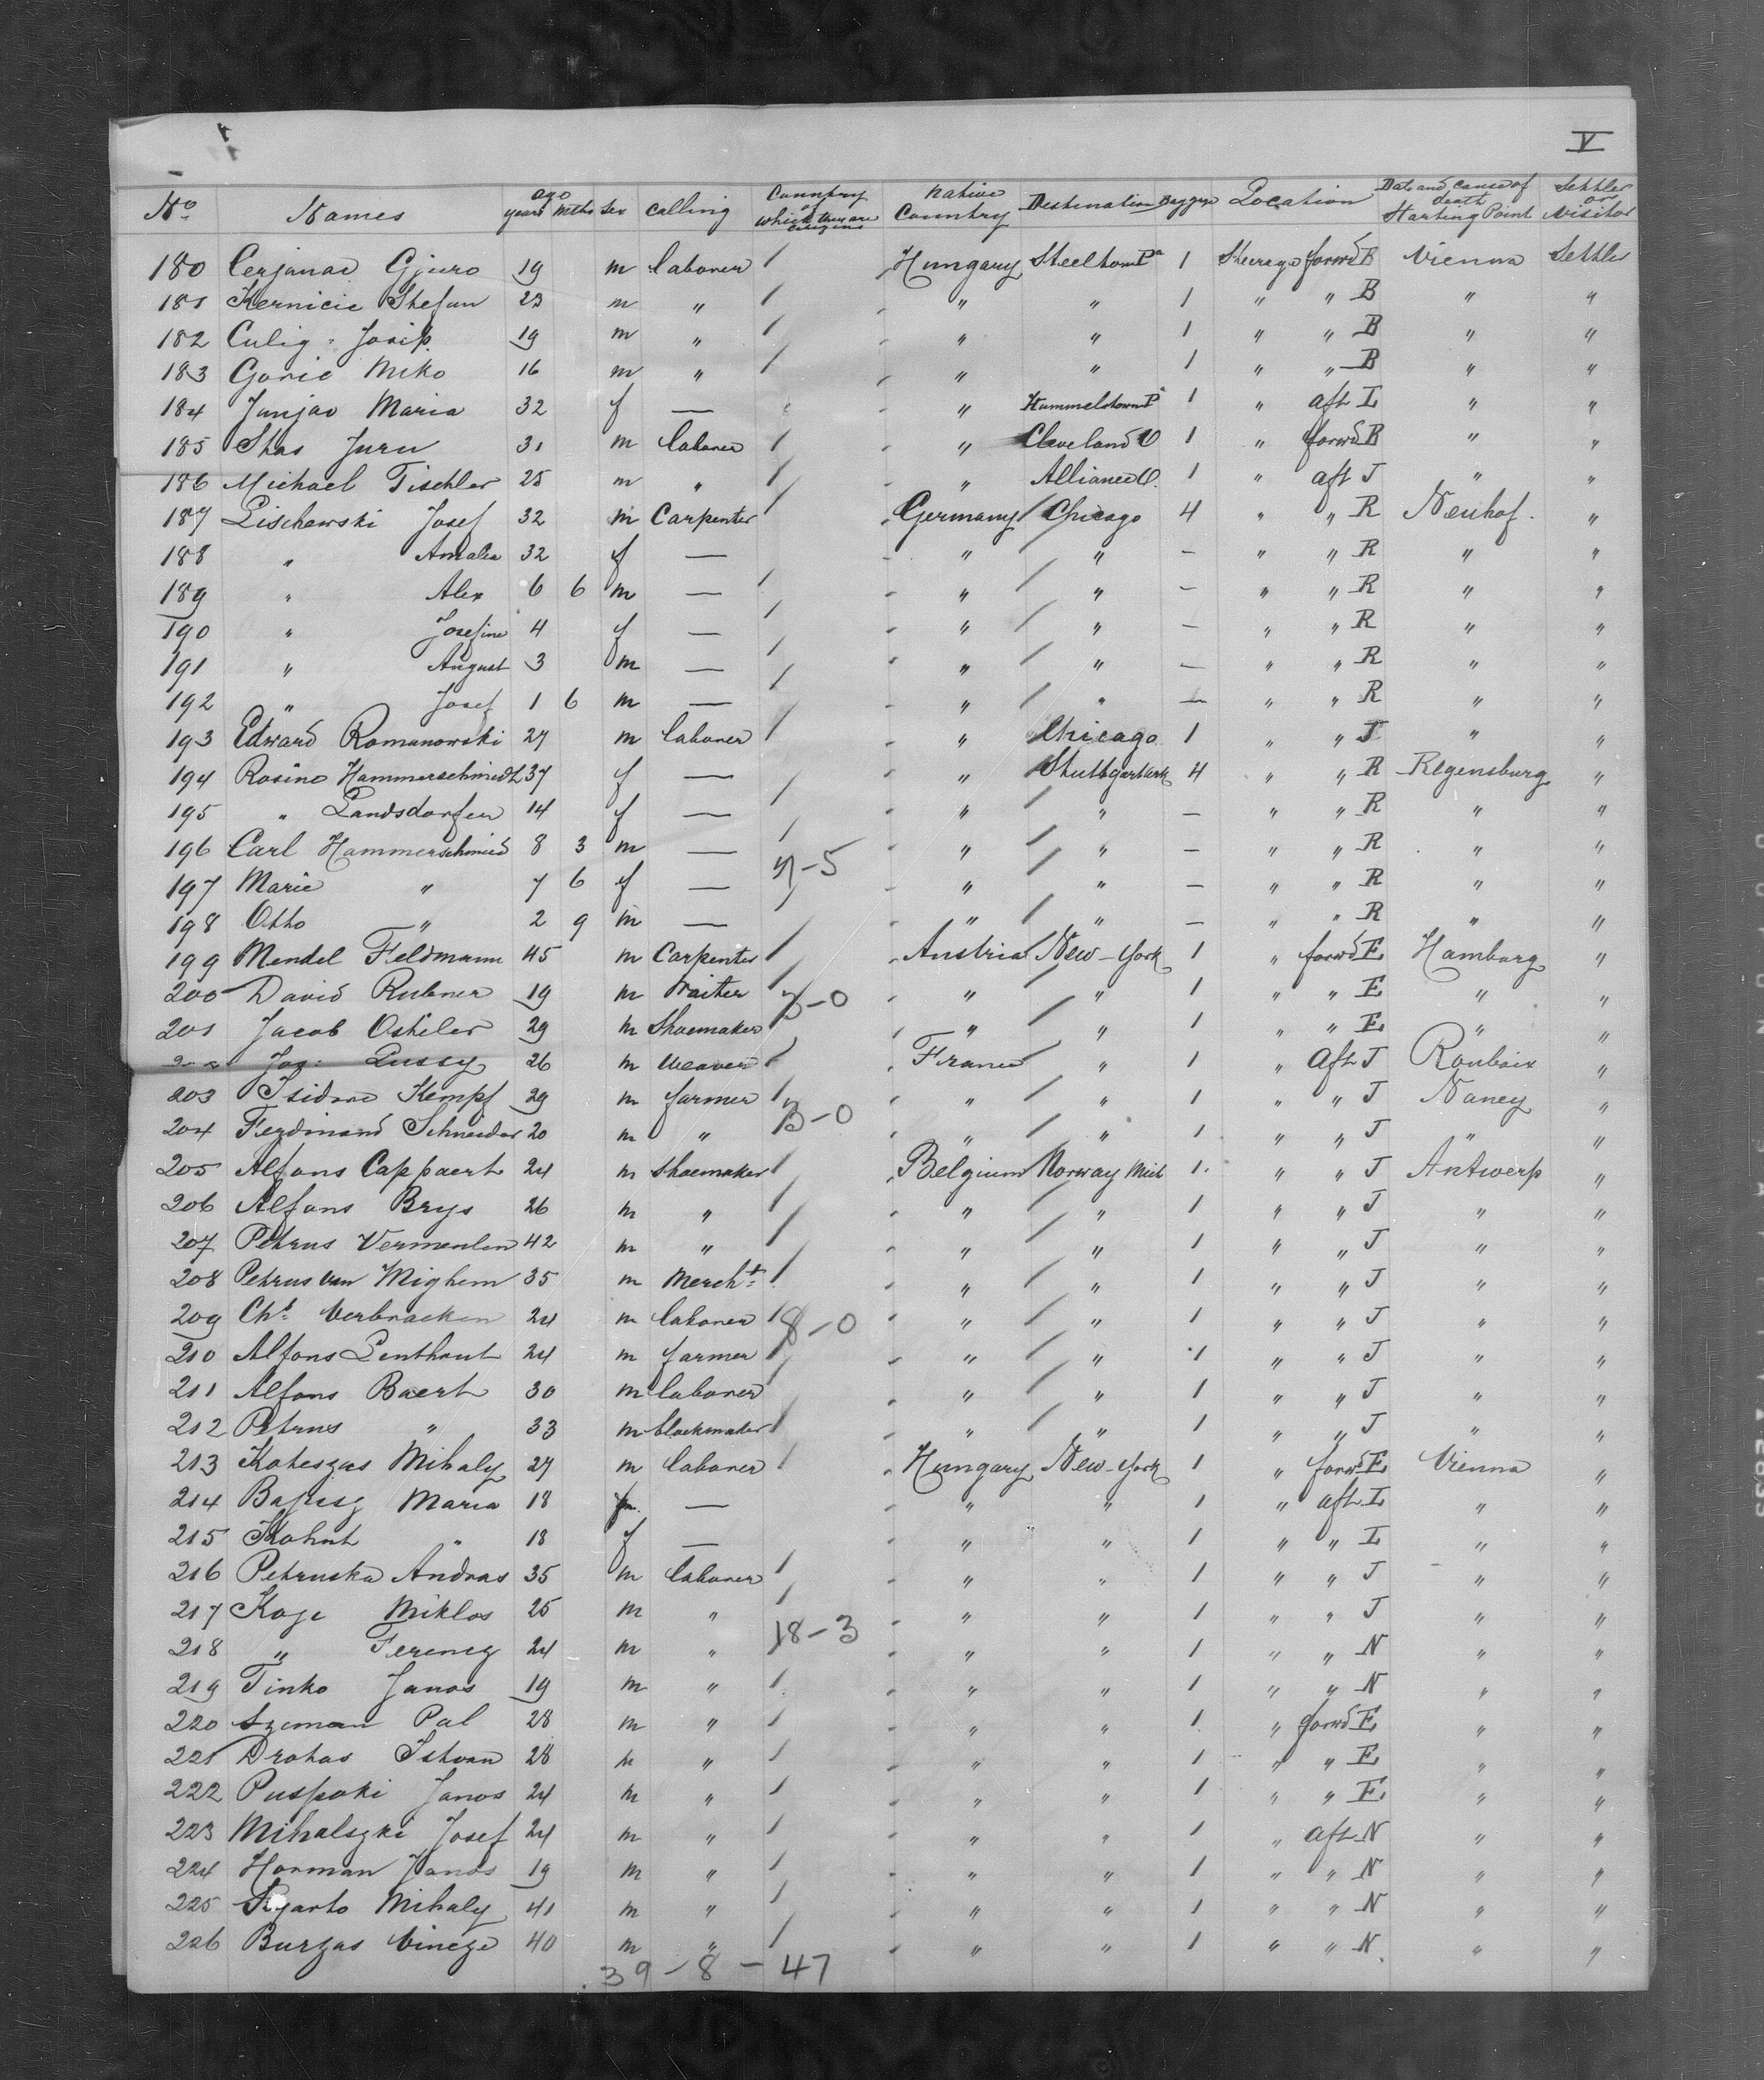 V
No Names age years mths Sex Calling Country of which they are citizens Native Country Destination Baggage Location Date and cause of death Starting Point Settler or Visitor
180 Cerjanac Gjuro 19 m laborer / Hungary Steelton Pa 1 Steerage forwd B Vienna Settler
181 Kernicic Stefan 23 m " / " " 1 " " B " "
182 Culig Josip 19 m " / " " 1 " " B " "
183 Goric Miko 16 m " / " " 1 " " B " "
184 Junjac Maria 32 f — " Hummelstown Pa 1 " aft L " "
185 Stas Juru 31 m laborer / " Cleveland O 1 " forwd B " "
186 Michael Tischler 25 m " / " Alliance O. 1 " aft J " "
187 Lischewski Josef 32 m Carpenter / Germany / Chicago 4 " " R Neuhof. "
188 " Amalia 32 f — " / " — " " R " "
189 " Alex 6 6 m — / " / " — " " R " "
190 " Josefine 4 f — / " / " — " " R " "
191 " August 3 m — / " / " — " " R " "
192 " Josef 1 6 m — / " / " — " " R " "
193 Edward Romanowski 27 m laborer / " Chicago 1 " " J " "
194 Rosine Hammerschmidt 37 f — " Stuttgart Ark 4 " " R Regensburg "
195 " Landsdorfer 14 f — / " / " — " " R " "
196 Carl Hammerschmied 8 3 m — / " / " — " " R " "
7-5
197 Marie " 7 6 f — " / " — " " R " "
198 Otto " 2 9 m — / " / " — " " R " "
199 Mendel Feldmann 45 m Carpenter / Austria New-York 1 " forwd E Hamburg "
200 David Rubner 19 m Waiter / " / " 1 " " E " "
3-0
201 Jacob Osteler 29 m Shoemaker / " / " 1 " " E " "
202 Jos: Lussy 26 m Weaver / France / " 1 " aft J Roubaix "
203 Isidore Kempf 29 m farmer / " / " 1 " " J Nancy "
3-0
204 Ferdinand Schneider 20 m " " / " 1 " " J " "
205 Alfons Cappaert 24 m Shoemaker / Belgium Norway Mich 1. " " J Antwerp "
206 Alfons Brys 26 m " / " / " 1 " " J " "
207 Petrus Vermeulen 42 m " / " / " 1 " " J " "
208 Petrus van Mighem 35 m Mercht / " / " 1 " " J " "
209 Chs Verbraeken 24 m laborer / " / " 1 " " J " "
8-0
210 Alfons Penthout 24 m farmer / " / " 1 " " J " "
211 Alfons Baert 30 m laborer / " / " 1 " " J " "
212 Petrus " 33 m clockmaker / " / " 1 " " J " "
213 Koteszas Mihaly 27 m laborer / Hungary New-York 1 " forwd E Vienna "
214 Maria 18 f — " " 1 " aft L " "
215 Kohut " 18 f — " " 1 " " L " "
216 Petruska Andras 35 m laborer / " " 1 " " J " "
217 Koge Miklos 25 m " / " " 1 " " J " "
18-3
218 " Ferencz 24 m " " " 1 " " N " "
219 Tinko Janos 19 m " / " " 1 " " N " "
220 Szeman Pal 28 m " / " " 1 " forwd E " "
221 Drotos Istvan 28 m " / " " 1 " " E " "
222 Puspoki Janos 24 m " / " " 1 " " E " "
223 Mihalszki Josef 24 m " / " " 1 " aft N " "
224 Horman Janos 19 m " / " " 1 " " N " "
225 Mihaly 41 m " / " " 1 " " N " "
226 Burgas Vincze 40 m " / " " 1 " " N. " "
39-8-47